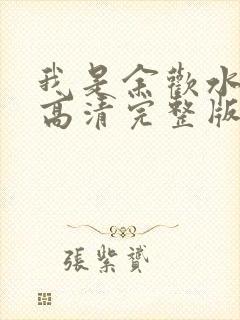 我是余歡水
高清完整版
張紫贇